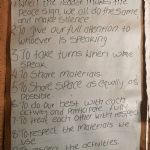 When the leader makes the
Peace sign, we all do the same
and make silence
To give our full attention to
whoever is speaking
5 To take turns when we
speak.
To Share materials.
To Share SPACE as equally as
possible
To do our best with each
activity and
To treat each other with respect
To respect the materials we
use.
the activities